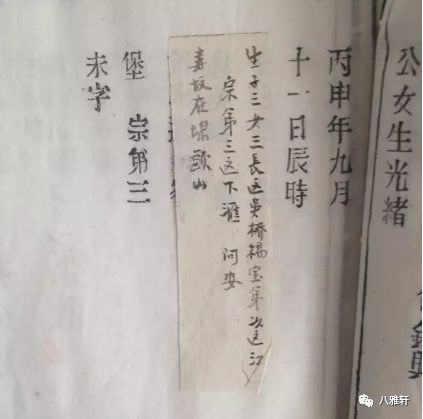 公女生光緒
丙申年九月
十一日辰時
生子三女三長适吳桥楊宝第次适江
宗第三适下滙 问安
寿坟在塚歐山
堡 宗第三
未字
八雅轩